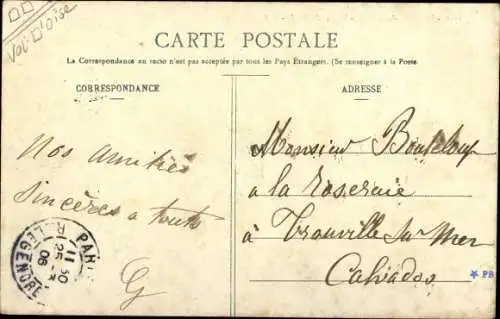 Val D'Oise
CARTE POSTALE
La Correspondance au recto n'est pas acceptée par tous les Pays Étrangers. (Se renseigner à la Poste
CORRESPONDANCE
ADRESSE
Nos amitiés
Sincères a touts
G
Monsieur Bouteloup
a la roseraie
à Trouville sur Mer
Calvados
PARI
11 50
25
06
R. LEGENDRE
* PB